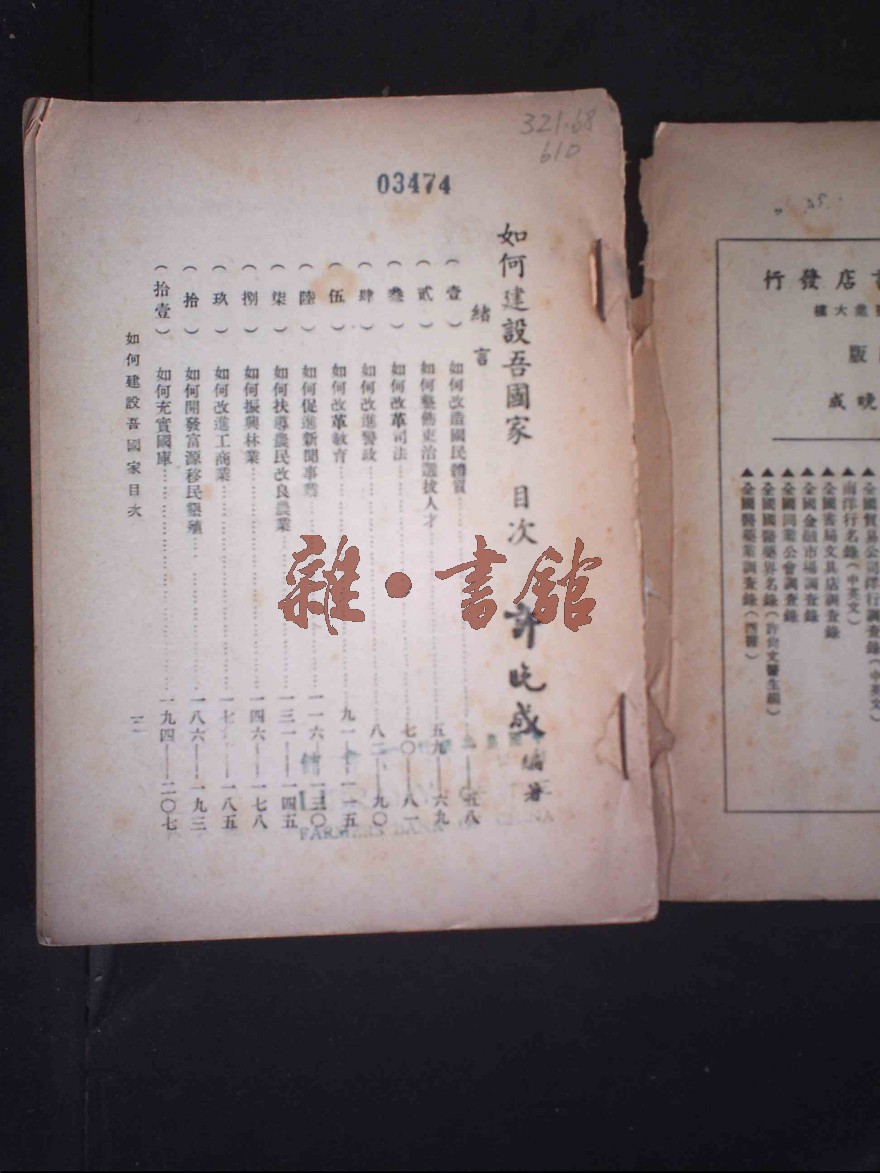 321.68
610
03474
如何建設吾國家 目次 許晚成 編著
緒言
(壹) 如何改造國民體質……五八
(貳) 如何整飭吏治選拔人才……五九——六九
(叁) 如何改革司法……七〇——八一
(肆) 如何改進警政……八二——九〇
(伍) 如何改革教育……九一——一一五
(陸) 如何促進新聞事業……一一六——一三〇
(柒) 如何扶導農民改良農業……一三一——一四五
(捌) 如何振興林業……一四六——一七八
(玖) 如何改進工商業……一七——一八五
(拾) 如何開發富源移民墾殖……一八六——一九三
(拾壹) 如何充實國庫……一九四——二〇七
如何建設吾國家目次
雜·書館
FARMERS BANK CHINA
書店發行
業大樓
版
晚成
▲全國貿易公司洋行調查錄(中英文)
▲南洋行名錄(中英文)
▲全國書局文具店調查錄
▲全國金融市場調查錄
▲全國同業公會調查錄
▲全國國醫藥界名錄(許尚文醫生編)
▲全國醫藥業調查錄(西醫)